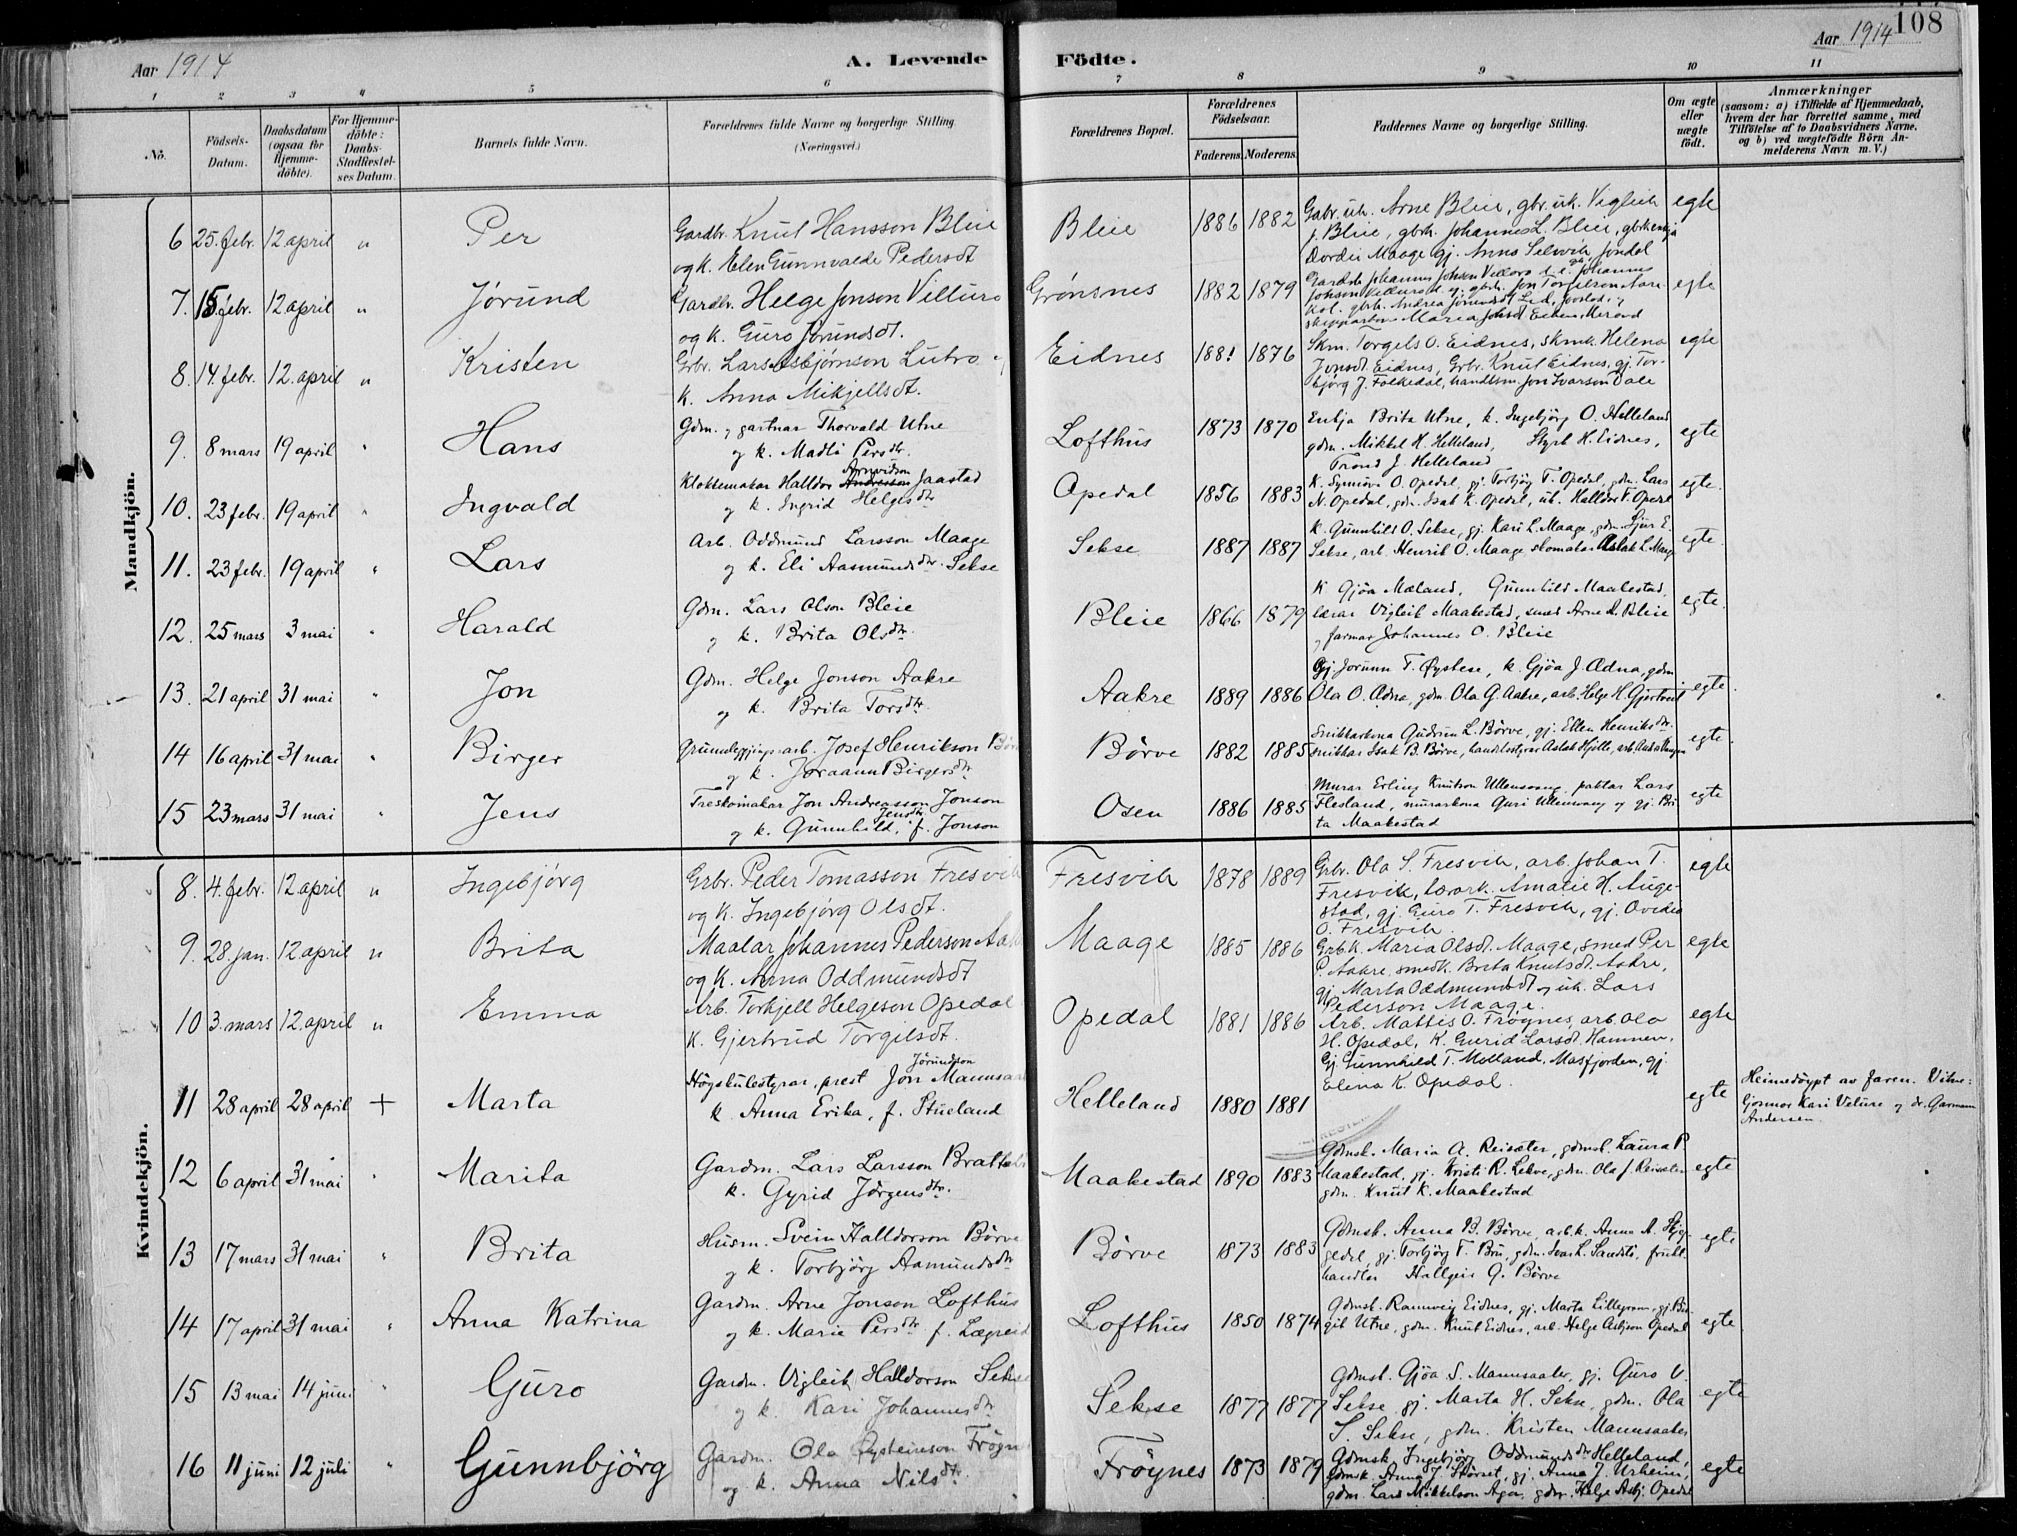 108
Aar 1914
A. Levende
Födte.
Aar 1914
1 2 3 4 5 6 7 8 9 10 11
No.
Födsels-
Datum.
Daabsdatum
(ogsaa for
Hjemme-
döbte).
For Hjemme-
döbte:
Daabs-
Stadfæstel-
ses Datum.
Barnets fulde Navn.
Forældrenes fulde Navne og borgerlige Stilling
(Næringsvei.)
Forældrenes Bopæl.
Forældrenes
Födselsaar.
Faderens. Moderens.
Faddernes Navne og borgerlige Stilling.
Om ægte
eller
uægte
födt.
Anmærkninger
(saasom: a) i Tilfælde af Hjemmedaab,
hvem der har forrettet samme, med
Tilföielse af to Daabsvidners Navne,
og b) ved uægtefödte Börn An-
melderens Navn m. V.)
Mandkjön.
6 25. febr. 12 april " Per
Gardbr. Knut Hansson Bleie
og K. Elen Gunnvalda Pedersdt
Bleie 1886 1882
Gabr. uk. Arne Bleie, gbr. uk. Vigleik
J. Bleie, gbrk. Johannes L. Bleie, gbrkenkja
Dordei Maage gj. Anna Selsvik, Jondal
egte
7. 15 febr. 12 april " Jórund
Gardbr. Helge Jonson Villuro
og K. Guro Jórundsdt.
Grónsnes 1882 1879
egte
8. 14. febr. 12. april " Kristen
Grbr. Lars Asbjørnson Lutro
K. Anna Mikjellsdt.
Eidnes 1881 1876
Skm. Torgels O. Eidnes, skmk. Helena
Jonsdt. Eidnes, Grbr. Knut Eidnes, gj. Tor-
bjórg J. Folkedal, handlsm. Jon Ivarson Dale
egte
9. 8 mars 19 april " Hans
Gdm. og gartnar Thorvald Utne
og k. Madli Persdtr.
Lofthus 1873 1870
Enkja Brita Utne, k. Ingebjörg O. Helleland
gdm. Mikkel H. Helleland, Styrk H. Eidnes,
Trond J. Helleland
egte
10. 23 febr. 19 april " Ingvald
Arnvidson
Klokkemakar Halldor Andreison Jaastad
og k. Ingrid Helgesdtr
Opedal 1856 1883
K. Synnöva O. Opedal, gj. Torbjörg T. Opedal, gdm. Lars
N. Opedal, gdm. Isak K. Opedal, uk. Halldor T. Opedal
egte.
11. 23 febr. 19 april " Lars
Arb. Oddmund Larsson Maage
og k. Eli Aasmundsdtr. Sekse
Sekse 1887 1887
K. Gunnhild O. Sekse, gj. Kari L. Maage, gdm. Sjur E.
Sekse, arb. Henrik O. Maage skomakar Aslak L. Maage
egte.
12. 25 mars 3 mai " Harald
Gdm. Lars Olson Bleie
og k. Brita Olsdtr.
Bleie 1866 1879
K Gjöa Mæland, Gunnhild Maakestad,
lærar Vigleik Maakestad, smed Arne A. Bleie
og farmar Johannes O. Bleie
egte.
13. 21 april 31 mai " Jon
Gdm. Helge Jonson Aakre
og k. Brita Torsdtr.
Aakre 1889 1886
Gj. Jorunn T. Øystese, k. Gjöa J. Ædna, gdm
Ola O. Ædna, gdm. Ola G. Aakre, arb. Helge H. Gjertveit
egte.
14 16 april 31 mai " Birger
Grunnleggjings-arb. Josef Henrikson Börve
og k. Joraann Birgersdtr
Börve 1882 1885
Snikkarkona Gudrun L. Börve, gj. Ellen Henriksdtr.
snikkar Isak B. Börve, handelsstyrar Aslak Hjelle,
egte.
15 23 mars 31 mai " Jens
Treskomakar Jon Andreasson Jonson
og k. Gunnhild Jensdtr, f. Jonson
Osen 1886 1885
Murar Erling Knutson Ullensvang, paktar Lars
Flesland, murarkona Guri Ullensvang og gj. Bri
ta Maakestad
egte
Kvindekjön.
8. 4. febr. 12 april " Ingebjórg
Grbr. Peder Tomasson Fresvik
og K. Ingebjórg Olsdt.
Fresvik 1878 1889
Grbr. Ola S. Fresvik, arb. Johan T.
Fresvik, lærark. Amalie H. Auge-
stad, gj. Guro T. Fresvik, gj. Ovidia
O. Fresvik.
egte
9. 28. jan. 12 april " Brita
Maalar Johannes Pederson Aakre
og K. Anna Oddmundsdt
Maage 1885 1886
Grbk. Maria Olsdt. Maage, smed Per
P. Aakre, smedk. Brita Knutsdt. Aakre,
gj. Marta Oddmundsdt og uk. Lars
Pederson Maage.
egte
10 3. mars 12 april " Emma
Arb. Torkjell Helgeson Opedal
K. Gjertrud Torgilsdt.
Opedal 1881 1886
Arb. Mattis O. Frøynes, arb. Ola
H. Opedal, K. Gurid Larsdt. Hammen,
Gj. Gunnhild T. Molland, Masfjorden, gj.
Elena K. Opedal.
egte
11 28 april 28 april + Marta
Jörundson
Högskulestyrar, prest Jon Mannsaaker
k. Anna Erika, f. Stueland
Helleland 1880 1881
egte
Heimedöypt av faren. Vitne:
Gjosmor Kari Velure og dr. Garmann
Andersen.
12 6 april 31 mai " Marita
Gardm. Lars Larsson Brattabö
k. Gyrid Jörgensdtr.
Maakestad 1890 1883
Gdmsk. Maria A. Reisæter, gdmsk. Laura P.
Maakestad, gj. Kristi R. Lekve, gdm. Ola J. Reisæter
gdm. Knut K. Maakestad
egte
13 17 mars 31 mai " Brita
Husm. Svein Halldorson Börve
og k. Torbjörg Aamundsdtr
Börve 1873 1883
Gdmsk. Anna B. Börve, arb.k. Anna A. Skjeg-
gedal, gj. Torbjörg T. Bu, gdm. Ivar L. Sandstö, frukt-
handlar Hallgeir G. Börve
egte
14 17 april 31 mai " Anna Katrina
Gardm. Arne Jonson Lofthus
og k. Marie Persdtr f. Lægreid
Lofthus 1850 1874
Gdmsk. Rannveig Eidnes, gj. Marta Lillegraven, gj. Bir-
git Utne, gdm. Knut Eidnes, arb. Helge Asbjson Opedal
egte.
15 13 mai 14 juni " Guro
Gardm. Vigleik Halldorson Sekse
og k. Kari Johannesdtr
Sekse 1877 1877
Gdmsk. Gjöa S. Mannsaaker, gj. Guro V.
Sekse gj. Marta H. Sekse, gdm. Ola
S. Sekse, gdm. Kristen Mannsaaker
egte
16 11 juni 12 juli " Gunnbjörg
Gardm. Ola Øysteinson Fröynes
og k. Anna Nilsdtr.
Fröynes 1873 1879
Gdmsk. Ingebjörg Oddmundsdtr Helleland,
Gdmsk. Anna J. Skörset, gj. Anna J. Urheim,
gdm. Lars Mikkelson Aga, gdm. Helge Asbj. Opedal
egte